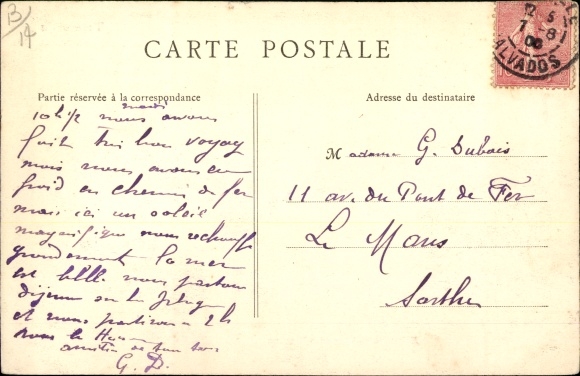 B/14
CARTE POSTALE
Partie réservée à la correspondance
mardi
10h 1/2 nous avons
fait très bon voyag
mais nous avons eu
froid en chemin de fer
mais ici un soleil
magnifique nous réchauffe
grandement la mer
est belle nous partons
déjeuner sur la plage
et nous partirons à 2h
pour le
amitiés de tous
G. D.
Adresse du destinataire
Madame G. Dubois
11 av. du Pont de Fer
Le Mans
Sarthe
ALVADOS